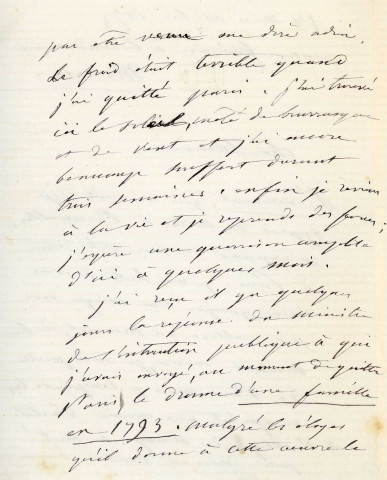 pas être venue me dire adieu.
Le froid était terrible quand
j'ai quitté paris. j'ai trouvé
ici le soleil, mêlé de bourrasques
et de vent et j'ai encore
beaucoup souffert durant
trois semaines. enfin je reviens
à la vie et je reprends des forces;
j'espère une guérison complète
d'ici à quelques mois.
j'ai reçu il y a quelques
jours la réponse du ministre
de l'instruction publique à qui
j'avais envoyé, au moment de quitter
Paris le drame d'une famille
en 1793. malgré les éloges
qu'il donne à cette œuvre le